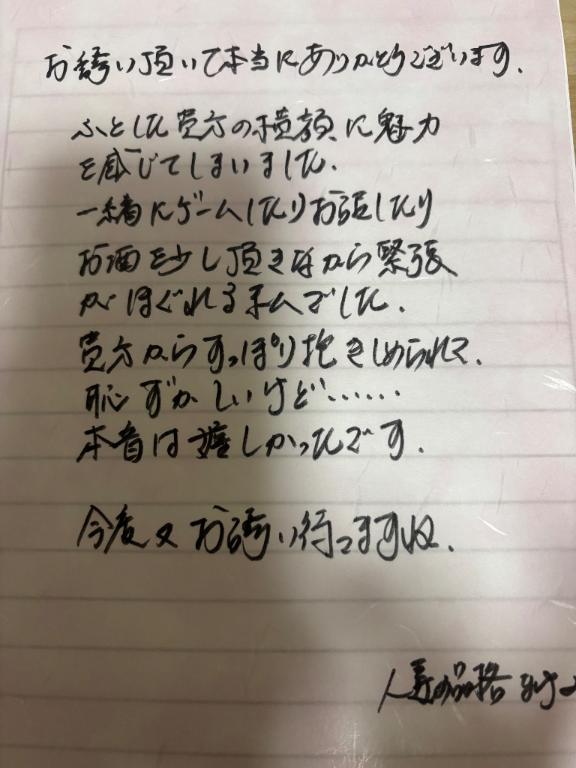 お誘い頂いて本当にありがとうございます.
ふとした貴方の横顔に魅力
を感じてしまいました.
一緒にゲームしたりお話したり
お酒を少し頂きながら緊張
がほぐれる予んでした.
貴方からすっぽり抱きしめられて.
恥ずかしいけど……
本音は嬉しかったです.
今度又お誘い待ってますね.
人妻の品格